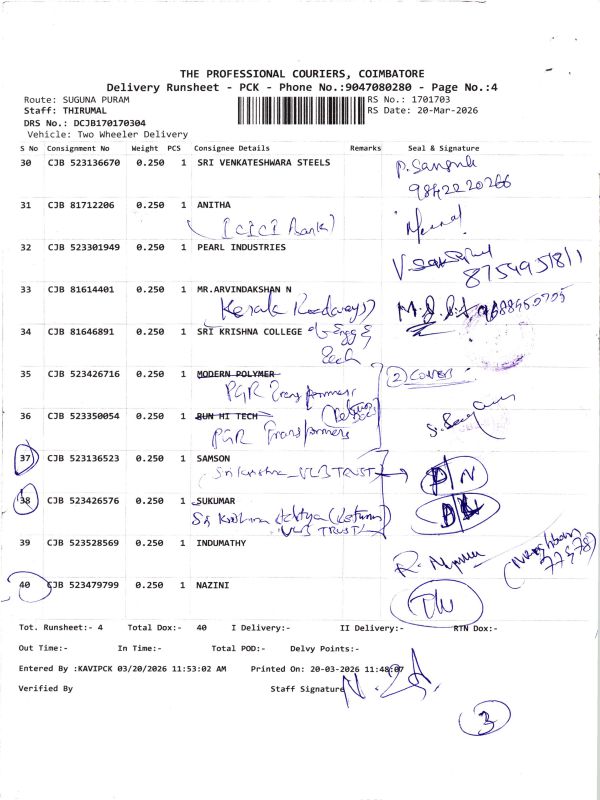 THE PROFESSIONAL COURIERS, COIMBATORE
Delivery Runsheet - PCK - Phone No.:9047080280 - Page No.:4
Route: SUGUNA PURAM
RS No.: 1701703
Staff: THIRUMAL
RS Date: 20-Mar-2026
DRS No.: DCJB170170304
Vehicle: Two Wheeler Delivery
S No Consignment No Weight PCS Consignee Details Remarks Seal & Signature
30 CJB 523136670 0.250 1 SRI VENKATESHWARA STEELS
9842220266
31 CJB 81712206 0.250 1 ANITHA
(ICICI Bank)
32 CJB 523301949 0.250 1 PEARL INDUSTRIES
8754951811
33 CJB 81614401 0.250 1 MR.ARVINDAKSHAN N
Kerala Roadways)
34 CJB 81646891 0.250 1 SRI KRISHNA COLLEGE of Engg &
Tech
35 CJB 523426716 0.250 1 MODERN POLYMER
(2) COVER
PGR Transformers
36 CJB 523350054 0.250 1 BUN HI TECH
PGR Transformers
37 CJB 523136523 0.250 1 SAMSON
Sri Krishna VLB TRUST
D/N
38 CJB 523426576 0.250 1 SUKUMAR
Sri Krishna (Return)
VLB TRUST
39 CJB 523528569 0.250 1 INDUMATHY
40 CJB 523479799 0.250 1 NAZINI
Tot. Runsheet:- 4 Total Dox:- 40 I Delivery:- II Delivery:- RTN Dox:-
Out Time:- In Time:- Total POD:- Delvy Points:-
Entered By :KAVIPCK 03/20/2026 11:53:02 AM Printed On: 20-03-2026 11:48:07
Verified By Staff Signature
3